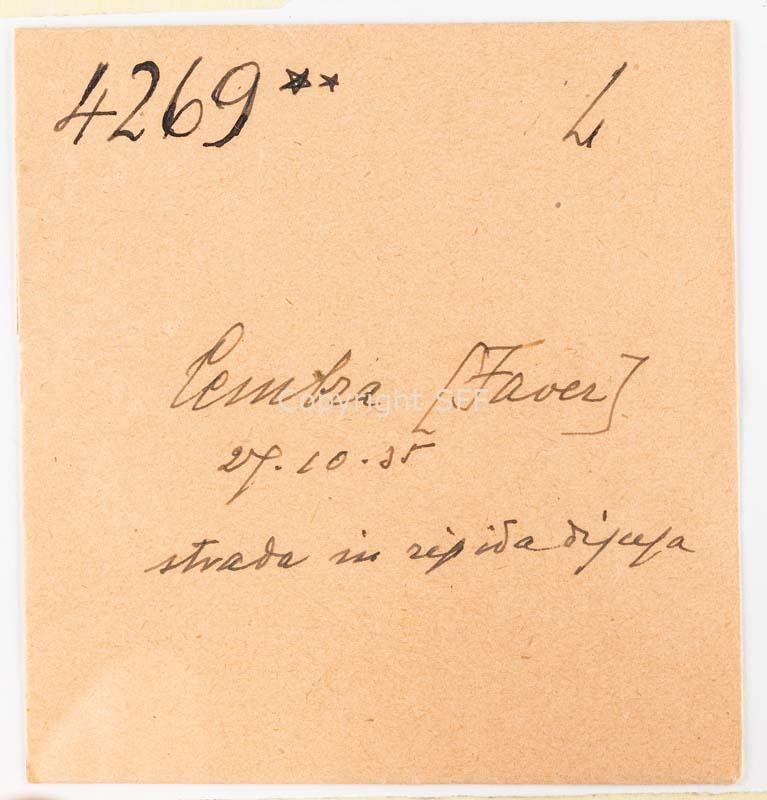 4269** L
Cembra [Faver]
27.10.35
strada in ripida discesa
Copyright SEF